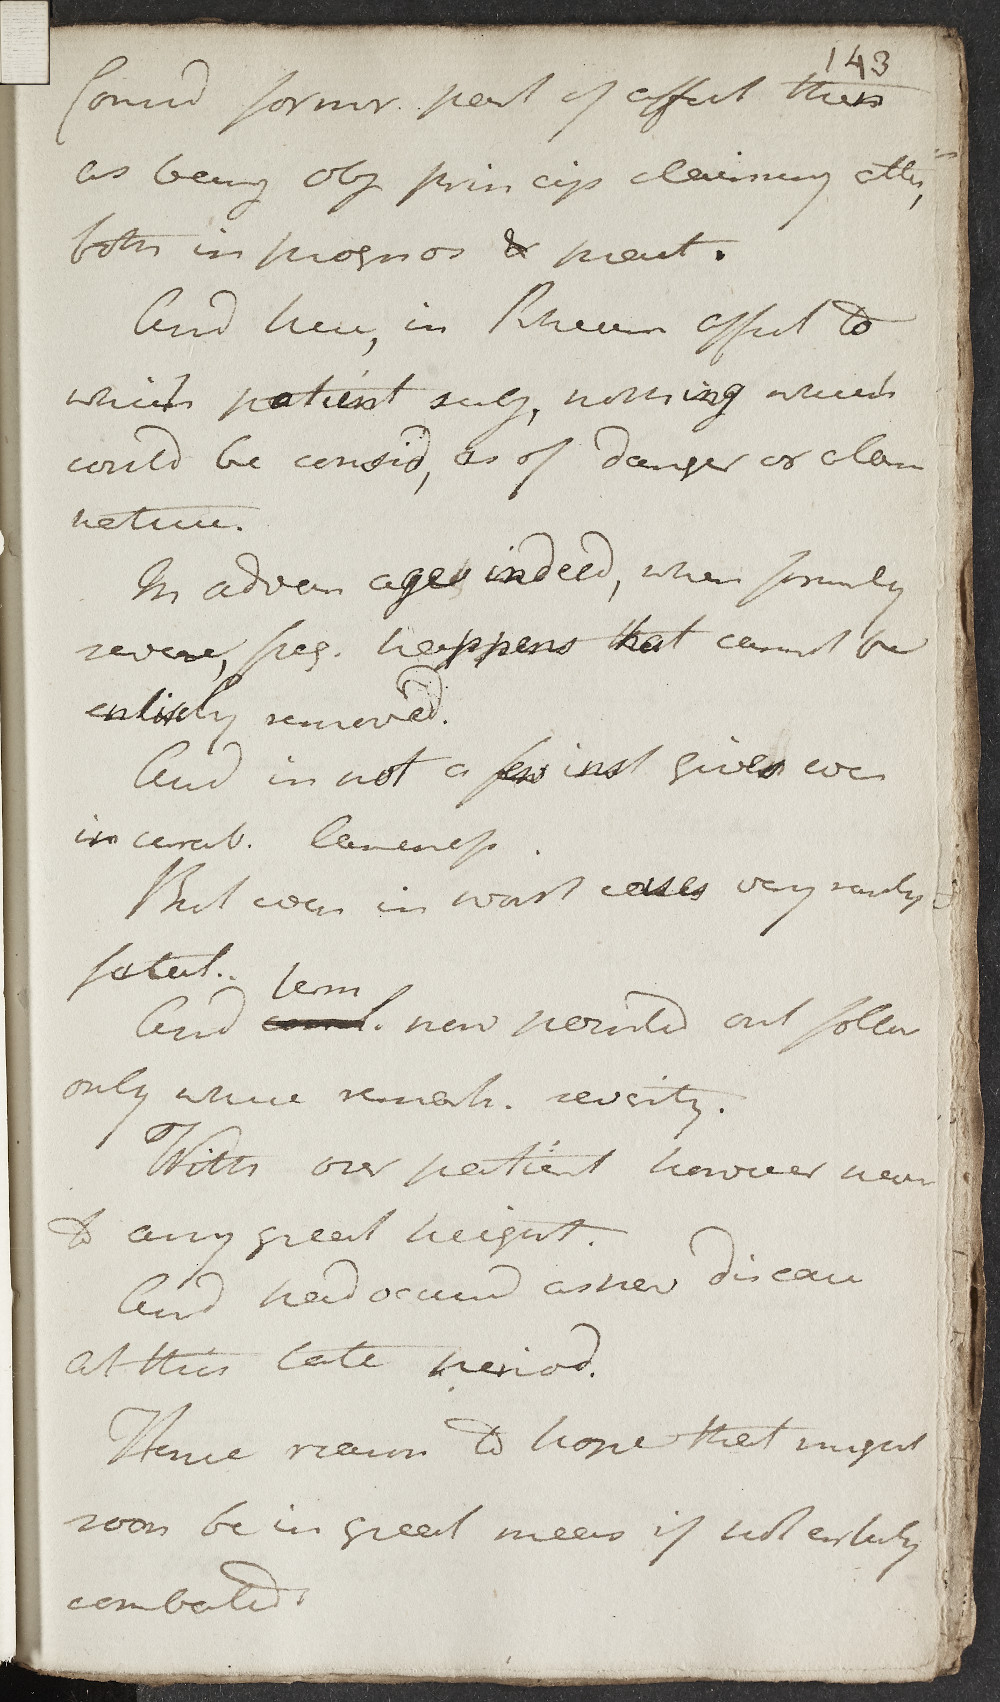 143
Consid former part of affect then
as being obj princip claiming atten,
both in prognos & pract.
And here, in Rheum affect to
which patient subj, nothing which
could be consid, as of danger or alarm
nature.
In advan age indeed, when formerly
severe, freq. happens that cannot be
entirely removed.
And in not a few inst gives even
incurab. lameness.
But even in worst cases very rarely
fatal..
term
And now pointed out follow
only where remark. severity.
With our patient however never
to any great height.
And had occurred as new disease
at this late period.
Hence reason to hope that might
soon be in great meas if not entirely
combated.